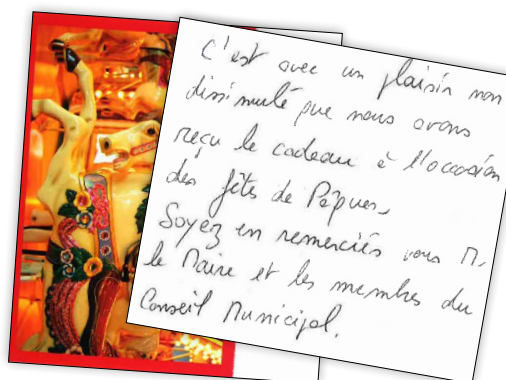 C'est avec un plaisir non
dissimulé que nous avons
reçu le cadeau à l'occasion
des fêtes de Pâques.
Soyez en remerciés vous M.
le Maire et les membres du
Conseil Municipal.